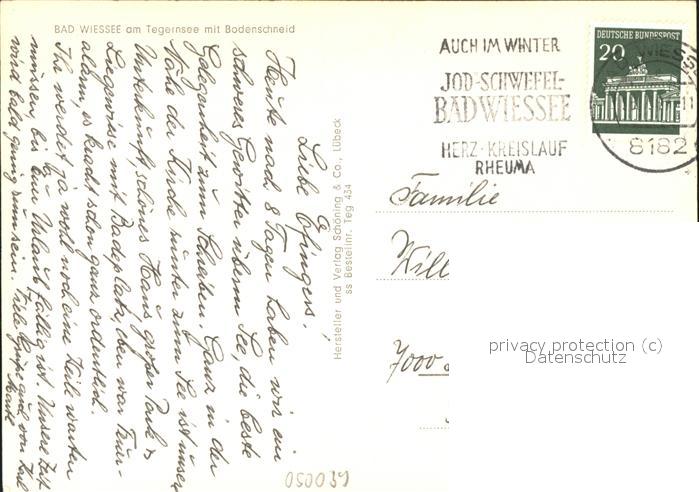 BAD WIESSEE am Tegernsee mit Bodenschneid
Liebe Ofingers!
Heute nach 8 Tagen haben wir ein
schweres Gewitter überm See, die beste
Gelegenheit zum Schreiben. Ganz in der
Nähe der Kirche runter zum See ist unser
Unterkunft, schönes Haus großer Park &
Liegewiese mit Badeplatz, eben war Feuer-
alarm, es kracht schon ganz ordentlich.
Ihr werdet ja wohl noch eine Weile warten
müssen, bis Euer Urlaub fällig ist. Unsere Zeit
wird bald herum sein. Viele Grüße auch von Karl
Hersteller und Verlag Schöning & Co., Lübeck
ss Bestellnr. Teg 434
AUCH IM WINTER
JOD-SCHWEFEL-
BAD WIESSEE
HERZ-KREISLAUF
RHEUMA
DEUTSCHE BUNDESPOST
20
8182
Familie
Will
7000
privacy protection (c)
Datenschutz
690050